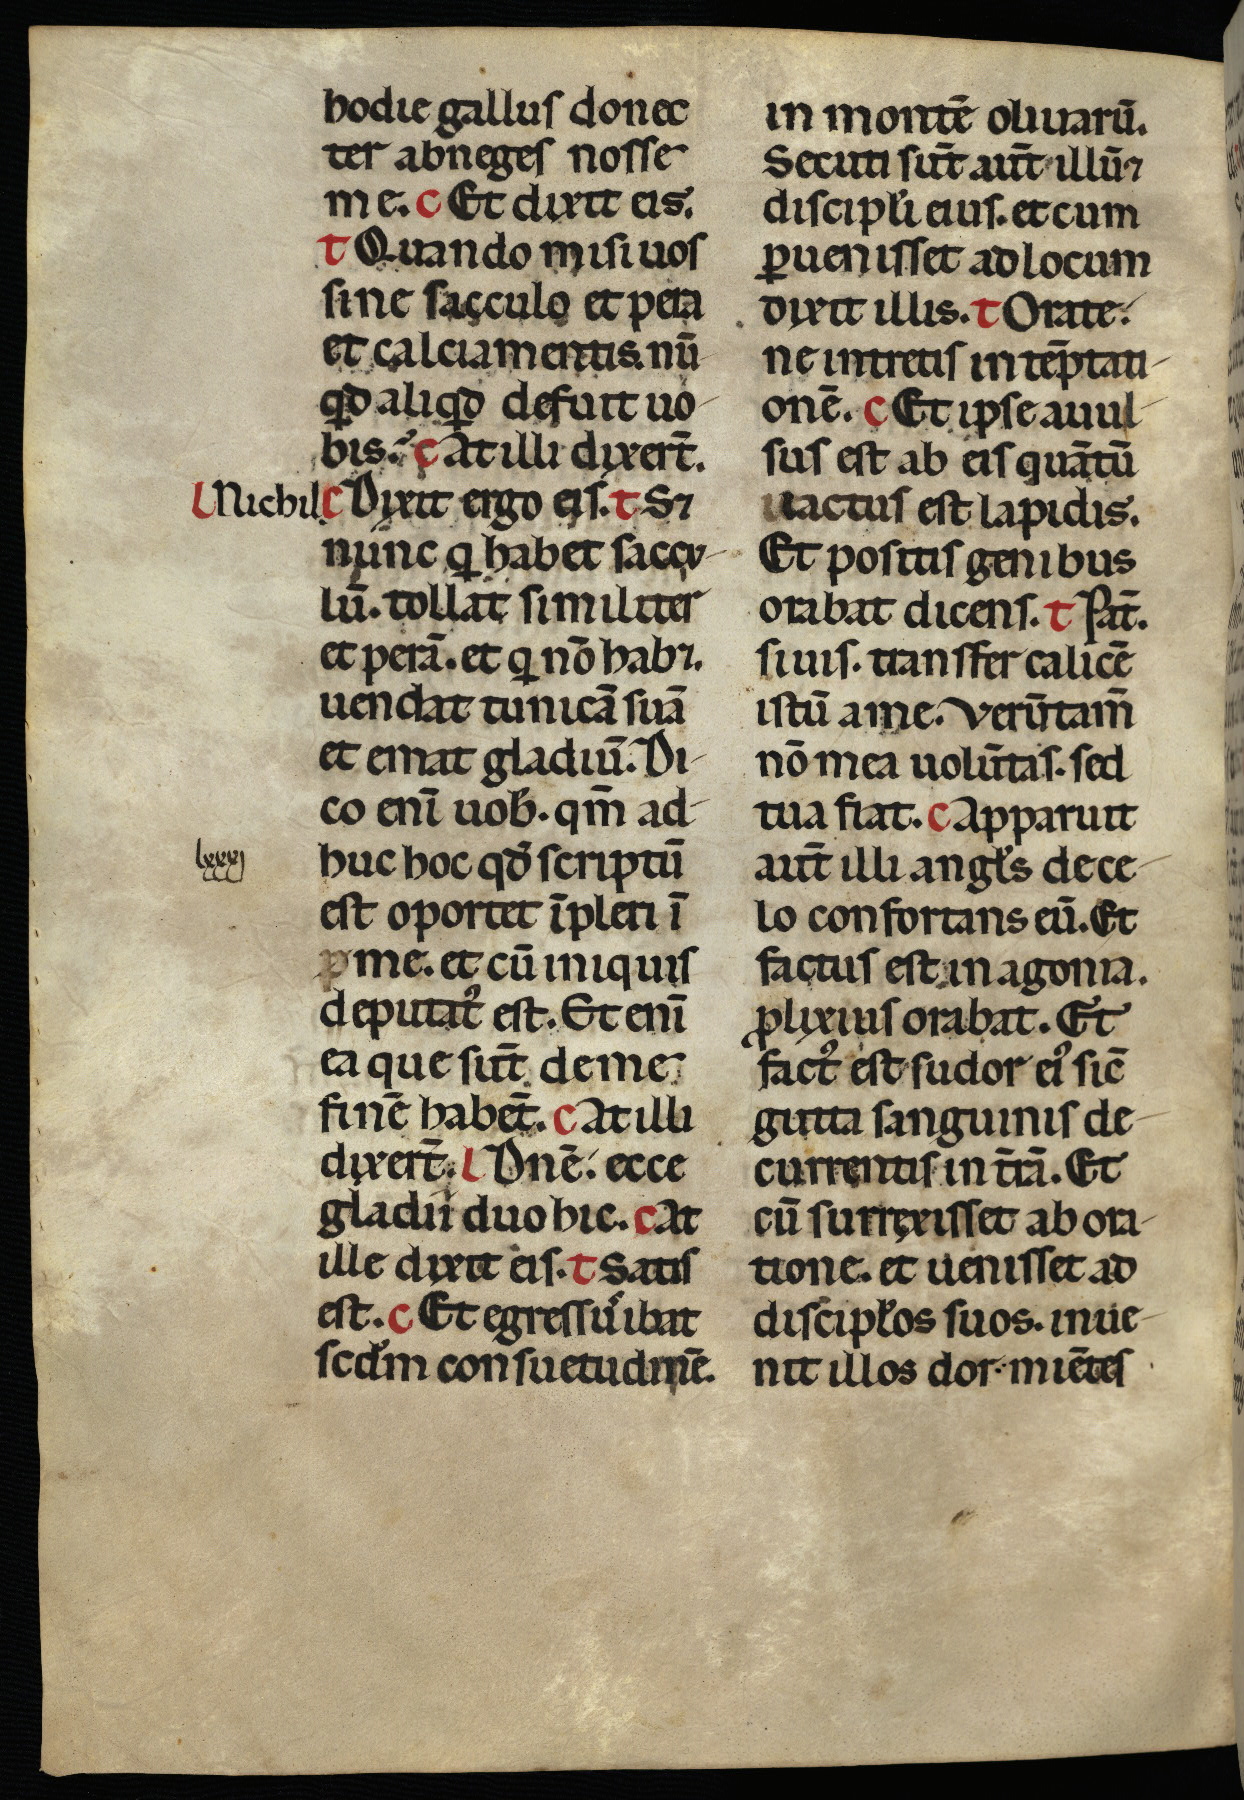 hodie gallus donec
ter abneges nosse
me. c Et dixit eis.
t Quando misi uos
sine sacculo et pera
et calciamentis. nū
qd aliqd defuit uo-
bis. c At illi dixer̄t.
l Nichil. c Dixit ergo eis. t S⁊
nunc q habet saccu-
lū. tollat similiter
et perā. et q nō hab⁊.
uendat tunicā suā
et emat gladiū. Di-
co eni̅ uob. qm̄ ad-
lxxxj
huc hoc qd̄ scriptū
est oportet i̅pleri i̅
me. et cū iniquis
deputat᾽ est. Et eni̅
ea que sūt de me
finē habēt. c At illi
dixer̄t. l Dnē. ecce
gladii duo hic. c At
ille dixit eis. t Satis
est. c Et egressu᾽ ibat
scdm consuetudinē.
in montē oliuarū.
Secuti sūt aūt illū ⁊
discipłi eius. et cum
puenisset ad locum
dixit illis. t Orate.
ne intretis in tēptati-
onē. c Et ipse auul-
sus est ab eis quātū
iactus est lapidis.
Et positis genibus
orabat dicens. t Pat̄.
si uis. transfer calicē
istū a me. Verūtam̄
nō mea uolūtas. sed
tua fiat. c Apparuit
aūt illi angłs de ce-
lo confortans eū. Et
factus est in agonia.
plixius orabat. Et
fact᾽ est sudor ei᾽ sic̄
gutta sanguinis de-
currentis in t̄rā. Et
cū surrexisset ab ora-
tione. et uenisset ad
discipłos suos. inue-
nit illos dormiētes